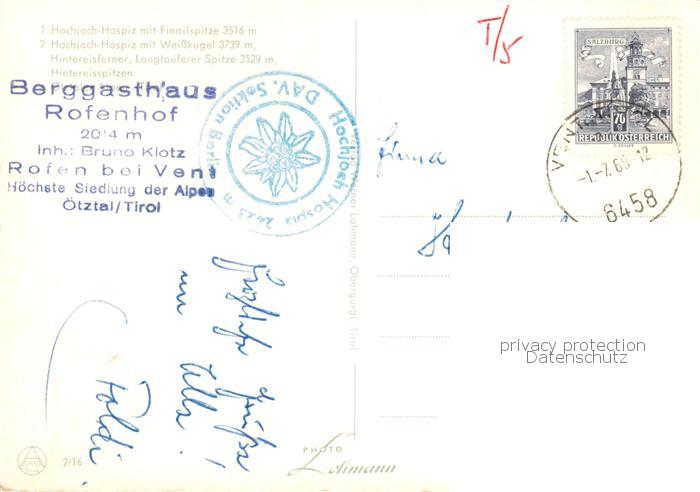 1 Hochjoch-Hospiz mit Finailspitze 3516 m
2 Hochjoch-Hospiz mit Weißkugel 3739 m,
Hintereisferner, Langtauferer Spitze 3529 m,
Hintereisspitzen
Berggasthaus
Rofenhof
2014 m
Inh.: Bruno Klotz
Rofen bei Vent
Höchste Siedlung der Alpen
Ötztal/Tirol
DAV. Sektion
Hochjoch Hospiz 2423 m
T/5
SALZBURG
70
REPUBLIK ÖSTERREICH
VENT
-1.-7.69-12
6458
Firma
Lohmann, Obergurgl, Tirol
Herzliche Grüße
an Alle!
Poldi
privacy protection
Datenschutz
2/16
PHOTO
Lohmann